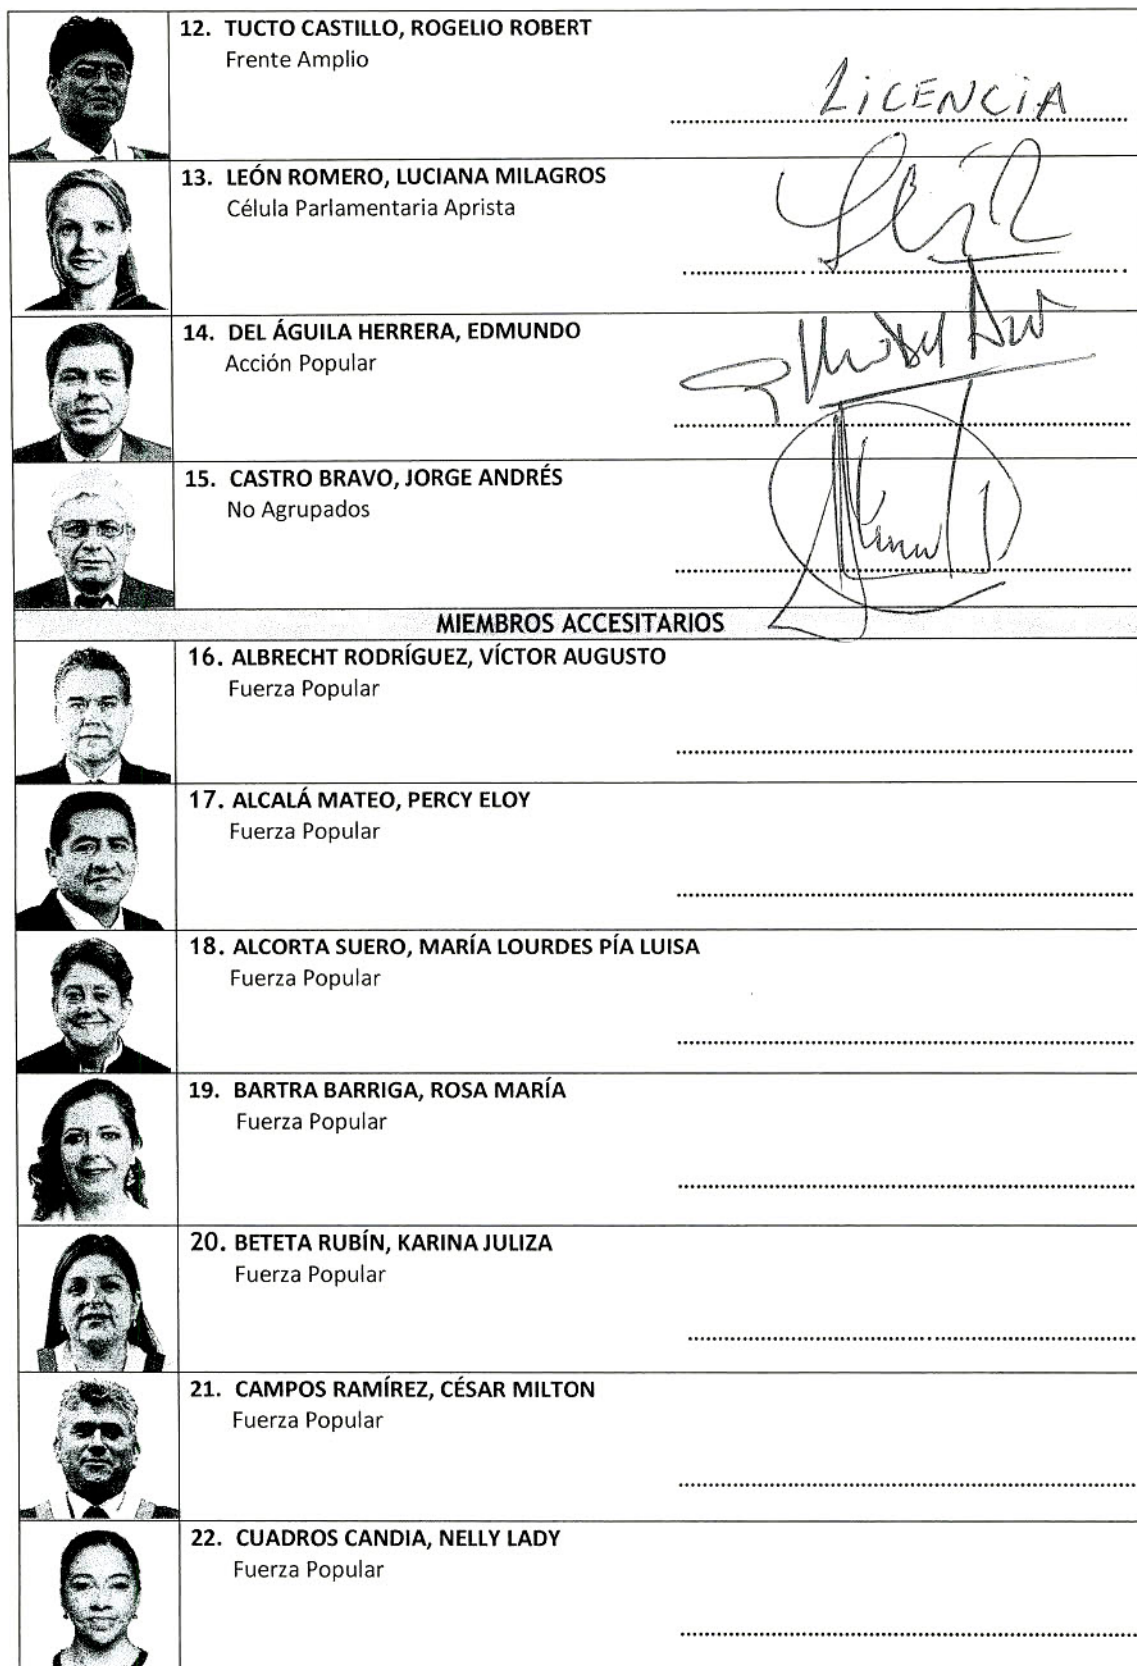 12. TUCTO CASTILLO, ROGELIO ROBERT
Frente Amplio
LICENCIA
13. LEÓN ROMERO, LUCIANA MILAGROS
Célula Parlamentaria Aprista
14. DEL ÁGUILA HERRERA, EDMUNDO
Acción Popular
15. CASTRO BRAVO, JORGE ANDRÉS
No Agrupados
MIEMBROS ACCESITARIOS
16. ALBRECHT RODRÍGUEZ, VÍCTOR AUGUSTO
Fuerza Popular
17. ALCALÁ MATEO, PERCY ELOY
Fuerza Popular
18. ALCORTA SUERO, MARÍA LOURDES PÍA LUISA
Fuerza Popular
19. BARTRA BARRIGA, ROSA MARÍA
Fuerza Popular
20. BETETA RUBÍN, KARINA JULIZA
Fuerza Popular
21. CAMPOS RAMÍREZ, CÉSAR MILTON
Fuerza Popular
22. CUADROS CANDIA, NELLY LADY
Fuerza Popular